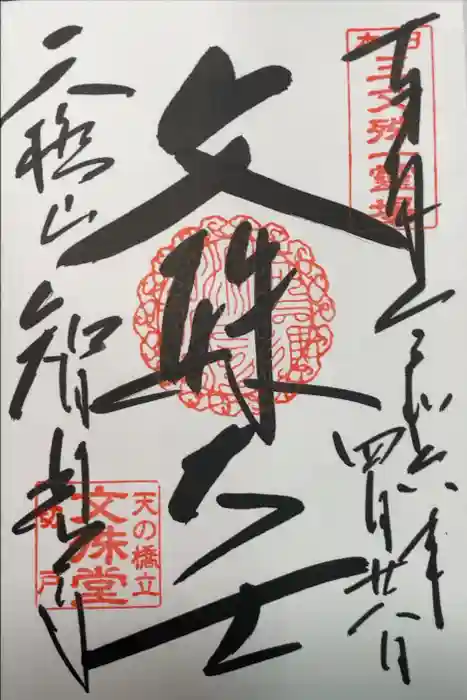 奉拝
令和六年
四月廿八日
日本
三文殊一霊場
文殊大士
天橋山
智恩寺
天の橋立
文殊堂